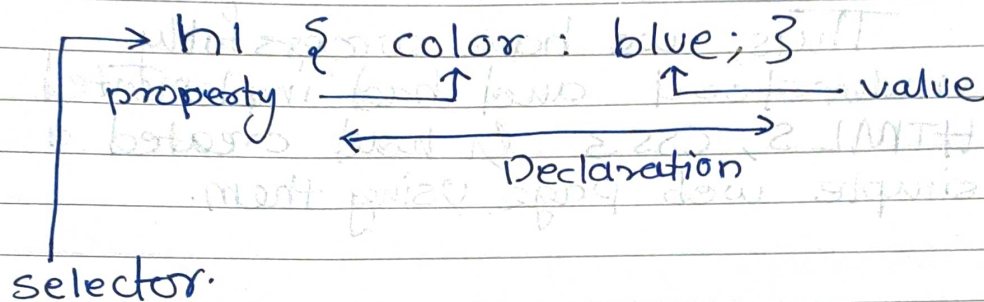 h1 { color : blue; }
property
value
Declaration
selector.